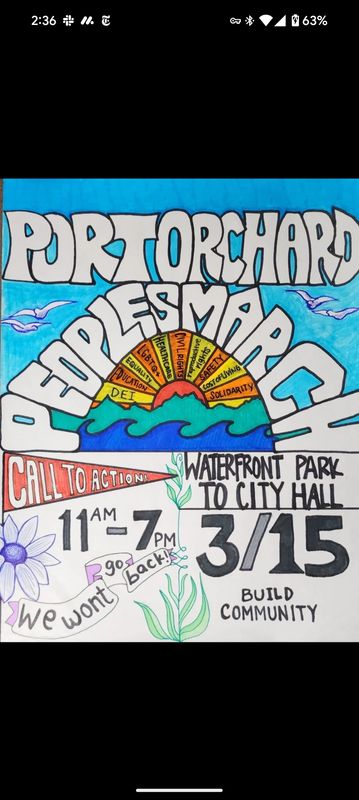 2:36
63%
PORTORCHARD
PEOPLES MARCH
DEI
EDUCATION
EQUALITY
LGBTQ+
HEALTHCARE
CIVIL RIGHTS
reproductive rights
SAFETY
COST OF LIVING
SOLIDARITY
CALL TO ACTION!
WATERFRONT PARK
TO CITY HALL
11AM-7PM
3/15
We wont go back!!
BUILD
COMMUNITY